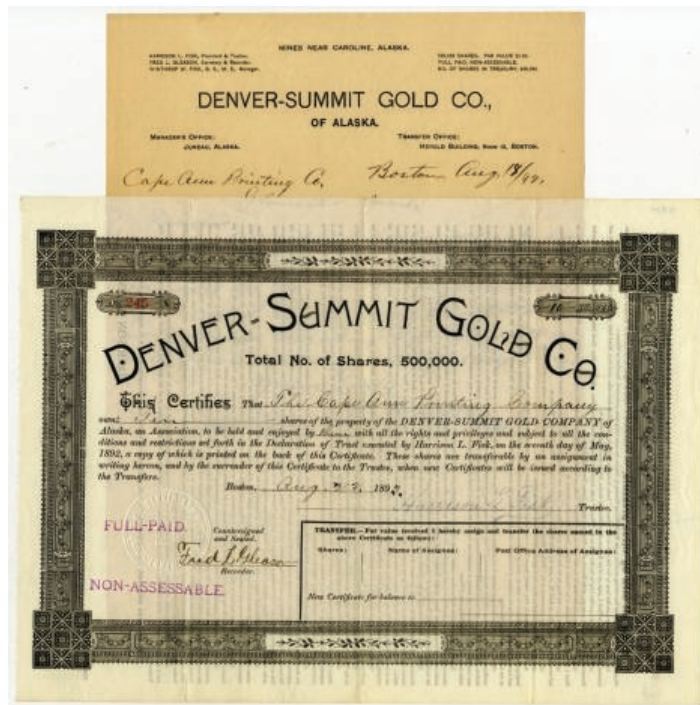 MINES NEAR CAROLINE, ALASKA.
HARRISON L. FISK, President & Trustee.
FRED L. GLEASON, Secretary & Recorder.
WINTHROP W. FISK, Manager.
FULL PAID, NON-ASSESSABLE.
NO. OF SHARES IN TREASURY,
DENVER-SUMMIT GOLD CO.,
OF ALASKA.
MANAGER'S OFFICE:
JUNEAU, ALASKA.
TRANSFER OFFICE:
HEROLD BUILDING, ROOM BOSTON.
Cape Ann Printing Co.
Boston Aug. 18/99.
245
10
DENVER-SUMMIT GOLD CO.
Total No. of Shares, 500,000.
This Certifies That The Cape Ann Printing Company
owns Ten shares of the property of the DENVER-SUMMIT GOLD COMPANY of
Alaska, an Association, to be held and enjoyed by with all the rights and privileges and subject to all the con-
ditions and restrictions set forth in the Declaration of Trust executed by Harrison L. Fisk, on the seventh day of May,
1892, a copy of which is printed on the back of this Certificate. These shares are transferable by an assignment in
writing hereon, and by the surrender of this Certificate to the Trustee, when new Certificates will be issued according to
the Transfers.
Boston, Aug. 22, 189
Harrison L. Fisk Trustee.
FULL-PAID.
NON-ASSESSABLE.
Countersigned
and Sealed.
Fred L. Gleason
Recorder.
TRANSFER.—For value received I hereby assign and transfer the shares named in the
above Certificate as follows:
Shares: Name of Assignee: Post Office Address of Assignee:
New Certificate for balance to